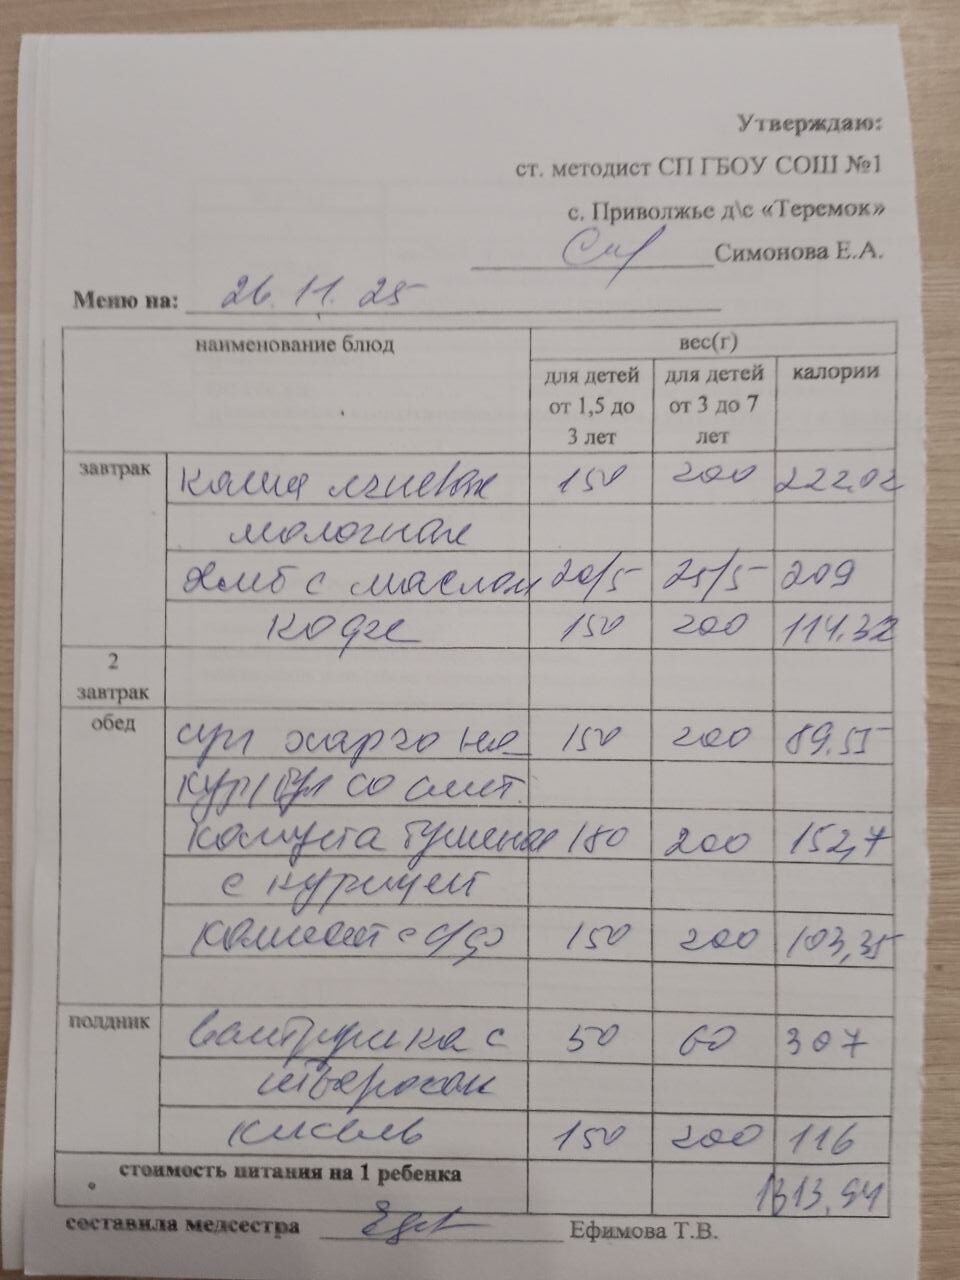 Утверждаю:
ст. методист СП ГБОУ СОШ №1
с. Приволжье д\с «Теремок»
Симонова Е.А.
Меню на: 26.11.25
наименование блюд вес(г)
для детей от 1,5 до 3 лет для детей от 3 до 7 лет калории
завтрак каша 150 200 222.02
молочная
хлеб с маслом 20/5 25/5 209
кофе 150 200 114.32
2 завтрак
обед суп харчо на 150 200 89.55
кур/бул со смет.
капуста тушеная 180 200 152,7
с курицей
компот с с/ф 150 200 103,35
полдник ватрушка с 50 60 307
творогом
кисель 150 200 116
стоимость питания на 1 ребенка 1313,94
составила медсестра Ефимова Т.В.